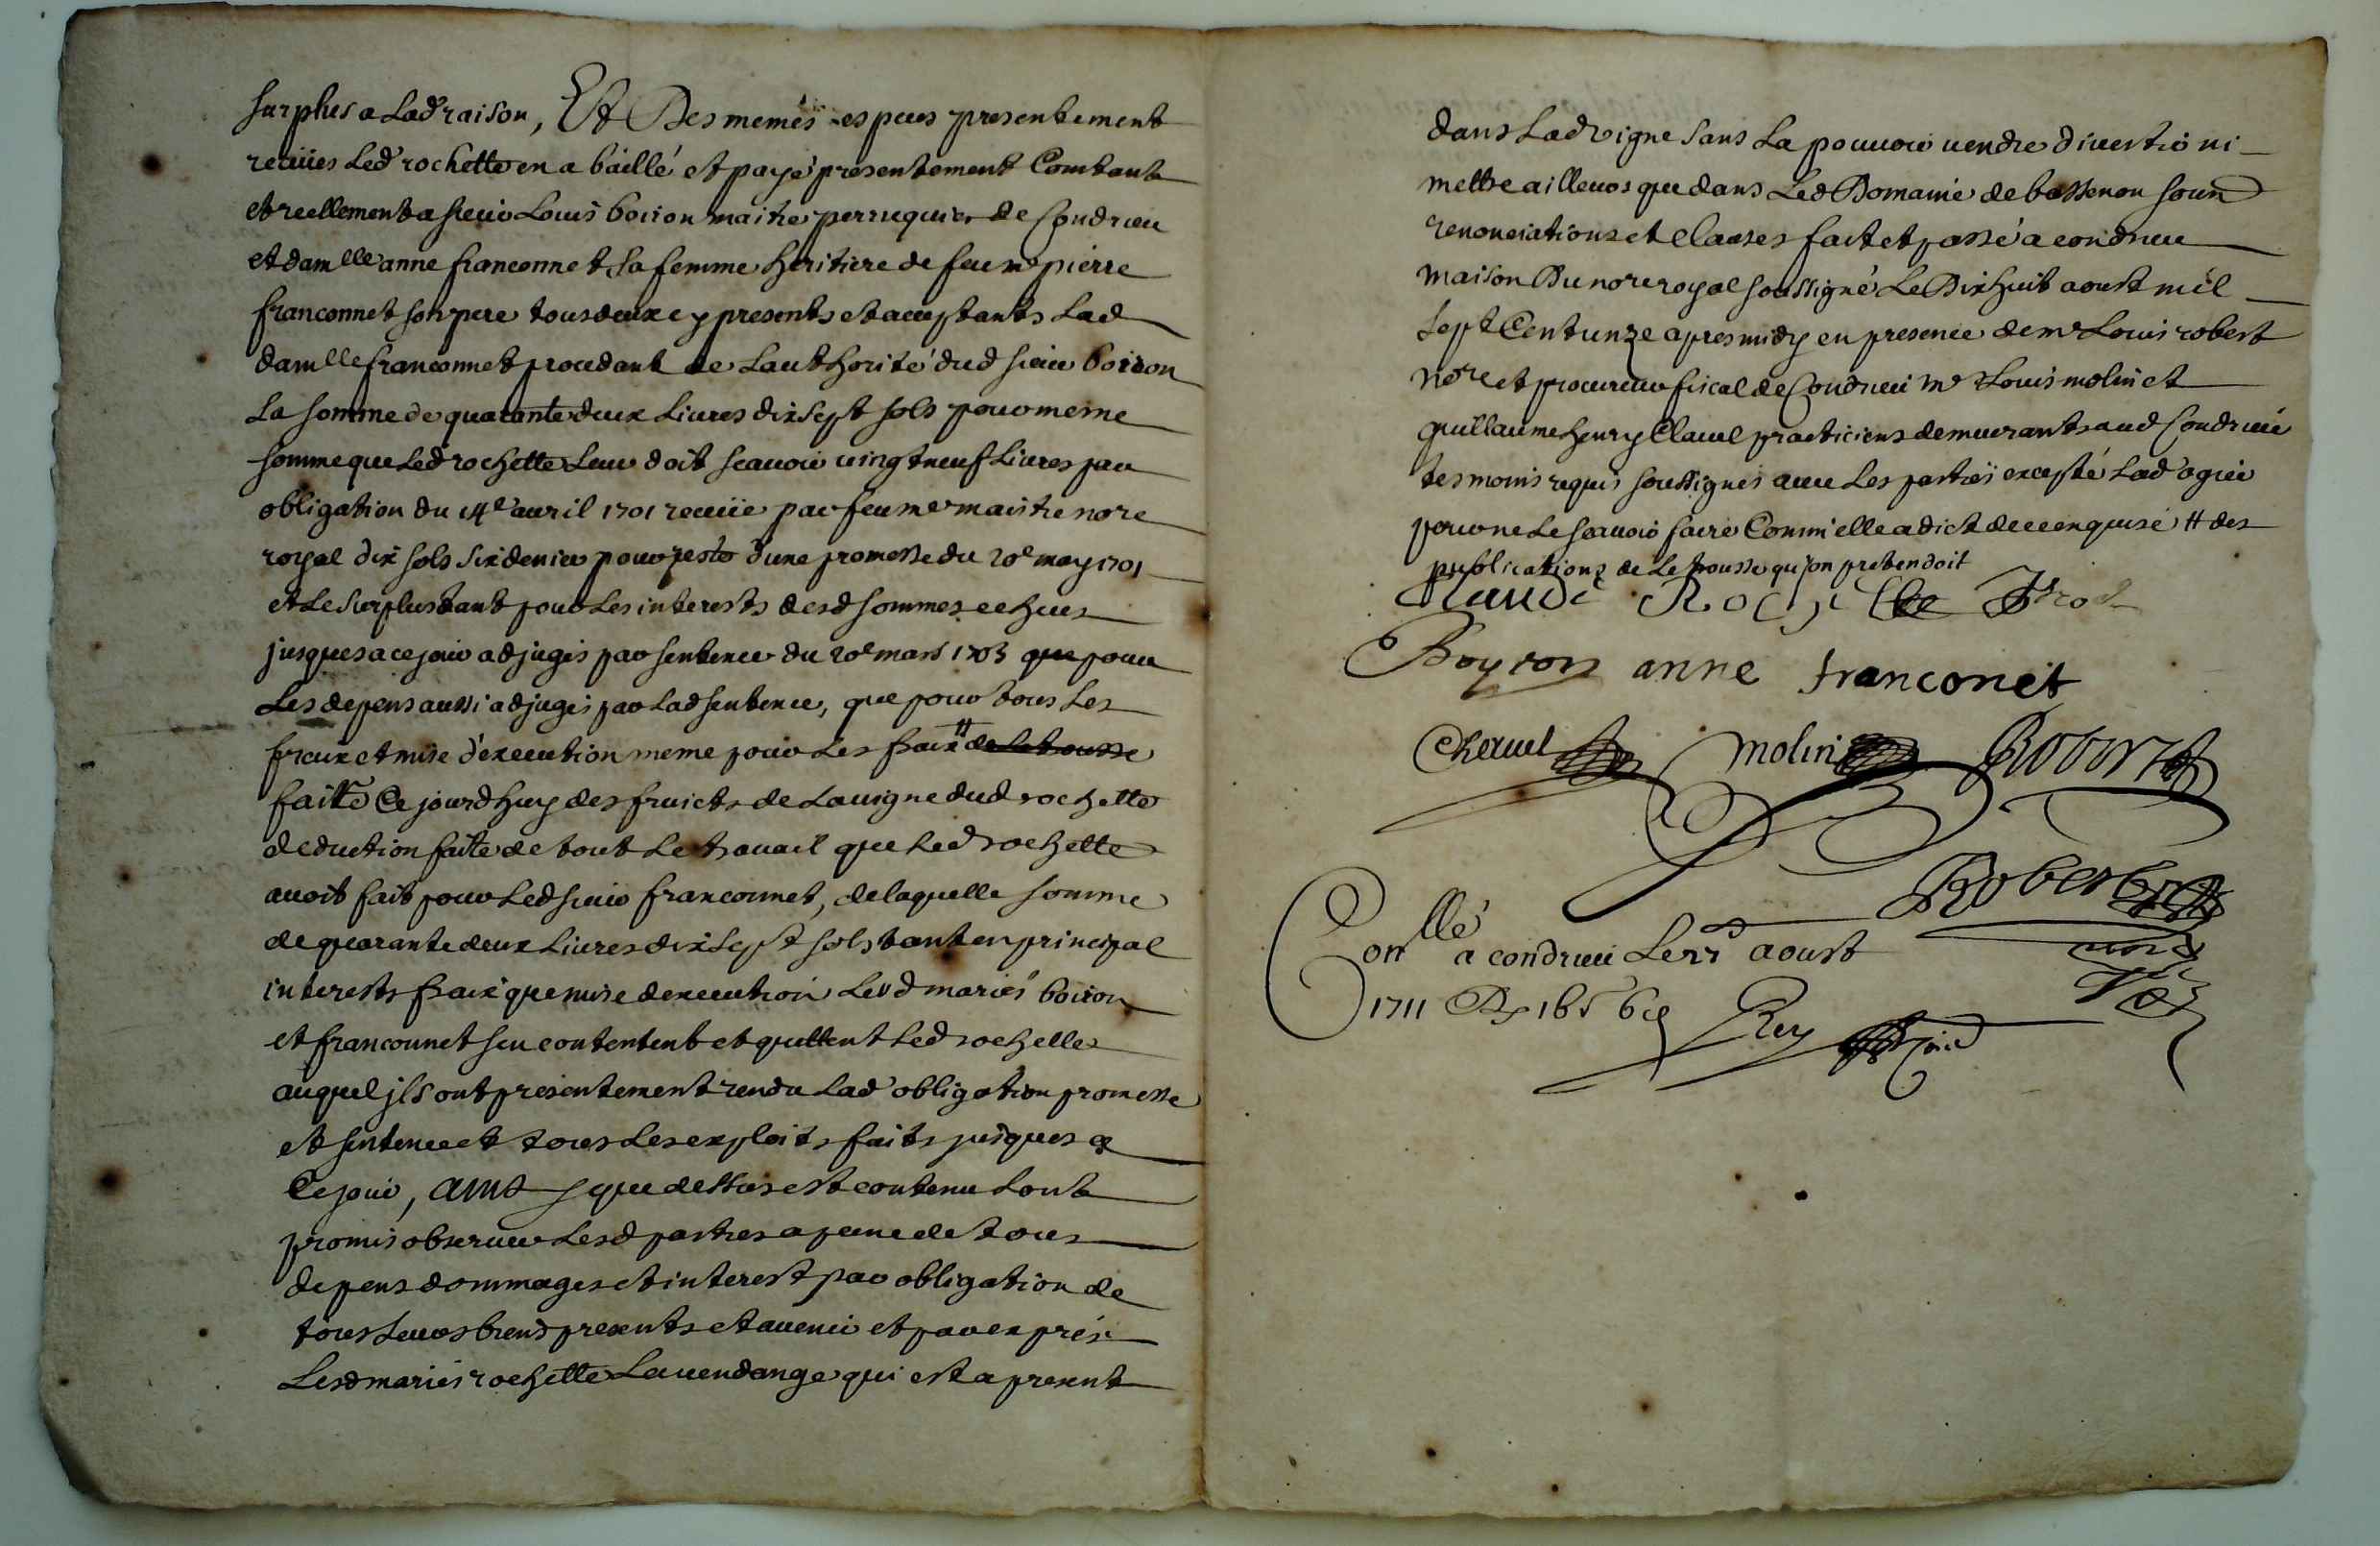 surplus a lad raison, Et Des memes especes presentement
receües led rochette en a baillé et payé presentement Comtant
et reellement a sieur Louis boiron maitre perruquier de Condrieu
et damlle anne franconnet sa femme heritiere de feu mr pierre
franconnet son pere tous deux cy presents et acceptants lad
damlle franconnet procedant de lauthorité dud sieur boiron
La somme de quarante deux Livres dix sept sols pour meme
somme que led rochette leur doit scavoir vingt neuf Livres par
obligation du 14e avril 1701 receüe par feu me maistre nore
royal dix sols six denier pour reste d'une promesse du 20e may 1701
et le surplus tant pour les interests desd sommes echeus
jusques a ce jour adjugés par sentence du 20e mars 1703 que pour
Les depens aussi adjugés par lad sentence, que pour tous les
fraix et mise d'execution meme pour les fraix # de la trousse
faitte Ce jourdhuy des fruicts de la vigne dud rochette
deduction faite de tout le travail que led rochette
avoit fait pour led sieur franconnet, de laquelle somme
de quarante deux Livres dix sept sols tant en principal
interests fraix que mise dexecution lesd mariés boiron
et franconnet seu contentent et quittent led rochette
auquel jls ont presentement rendu lad obligation promesse
et sentence et tous les exploits faits jusques a
Ce jour, ainsy que dessus est contenu l'ont
promis observer lesd parties a peine de tous
depens dommages et interest par obligation de
tous leurs biens presents et avenir et par exprés
Lesd mariés rochette la vendange qui est a present
dans lad vigne sans la pouvoir vendre divertir ni
mettre ailleurs que dans led Domaine de bassenon soun
renonciations et clauses fait et passé a condrieu
maison Du nore royal soussigné Le Dix huit aoust mil
sept Cent unze apres midy en presence de mr Louis robert
nore et procureur fiscal de Condrieu mr Louis molin et
guillaume henry Clavel practiciens demeurants aud Condrieu
tesmoins requis soussignés avec les parties excepté lad ogier
pour ne le scavoir faire Comm'elle a dict de ce enquise # des
publications de la trousse qu'on pretendoit
Claude Rochette
Boyron anne franconet
Clavel molin Robert
Robert
Conllé a condrieu le 22 aoust
1711 Rx 16s 6d
Rey